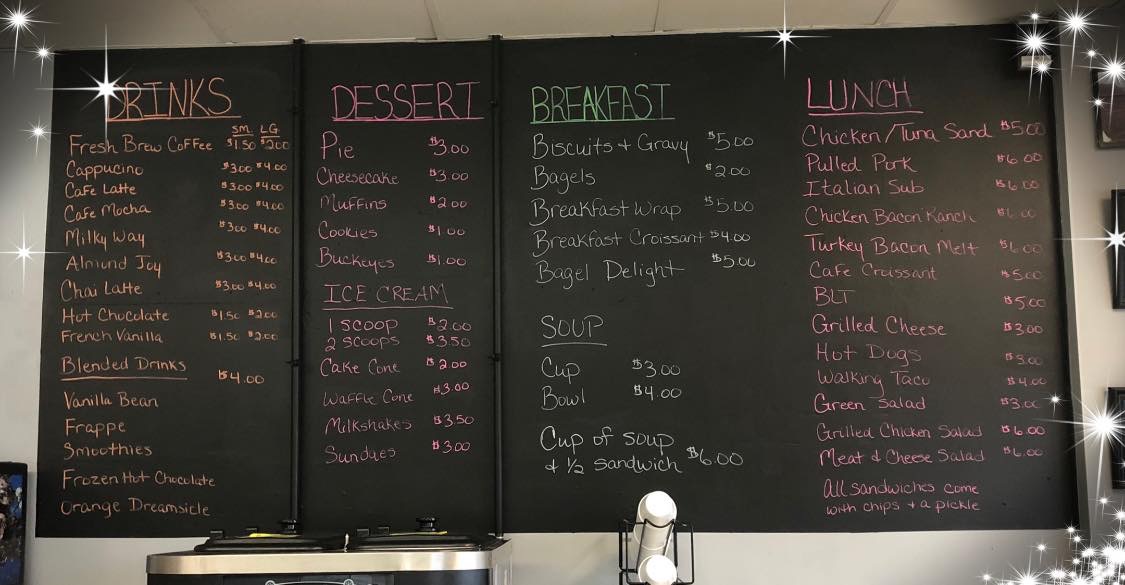 DRINKS
SM. LG
Fresh Brew Coffee $1.50 $2.00
Cappucino $3.00 $4.00
Cafe Latte $3.00 $4.00
Cafe Mocha $3.00 $4.00
Milky Way $3.00 $4.00
Almond Joy $3.00 $4.00
Chai Latte $3.00 $4.00
Hot Chocolate $1.50 $2.00
French Vanilla $1.50 $2.00
Blended Drinks $4.00
Vanilla Bean
Frappe
Smoothies
Frozen Hot Chocolate
Orange Dreamsicle
DESSERT
Pie $3.00
Cheesecake $3.00
Muffins $2.00
Cookies $1.00
Buckeyes $1.00
ICE CREAM
1 scoop $2.00
2 scoops $3.50
Cake Cone $2.00
Waffle Cone $3.00
Milkshakes $3.50
Sundaes $3.00
BREAKFAST
Biscuits + Gravy $5.00
Bagels $2.00
Breakfast Wrap $5.00
Breakfast Croissant $4.00
Bagel Delight $5.00
SOUP
Cup $3.00
Bowl $4.00
Cup of soup
& 1/2 sandwich $6.00
LUNCH
Chicken/Tuna Sand $5.00
Pulled Pork $6.00
Italian Sub $6.00
Chicken Bacon Ranch $6.00
Turkey Bacon Melt $6.00
Cafe Croissant $5.00
BLT $5.00
Grilled Cheese $3.00
Hot Dogs $3.00
Walking Taco $4.00
Green Salad $3.00
Grilled Chicken Salad $6.00
Meat & Cheese Salad $6.00
All sandwiches come
with chips + a pickle